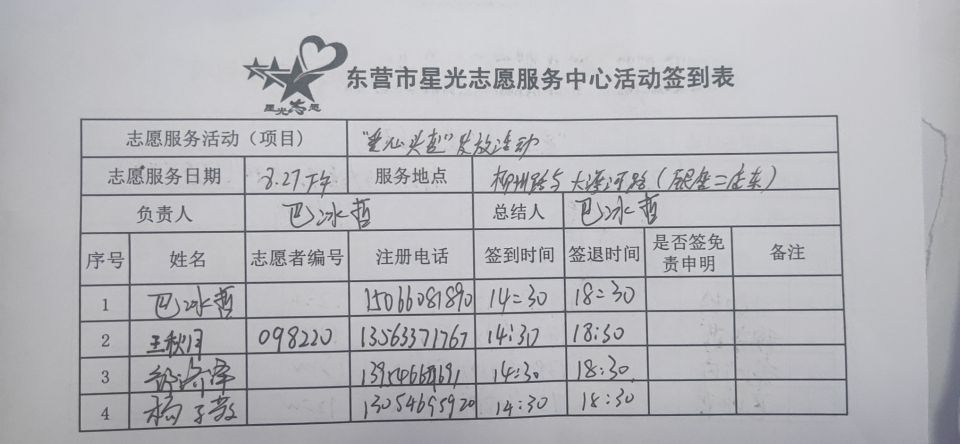 星光志愿
东营市星光志愿服务中心活动签到表
志愿服务活动（项目） "爱心头盔"发放活动
志愿服务日期 8.27下午 服务地点 柳州路与大渡河路（银座二店东）
负责人 巴冰哲 总结人 巴冰哲
序号 姓名 志愿者编号 注册电话 签到时间 签退时间 是否签免责申明 备注
1 巴冰哲 15066081890 14:30 18:30
2 王秋月 098220 13563371767 14:30 18:30
3 14:30 18:30
4 杨子敬 13054695920 14:30 18:30